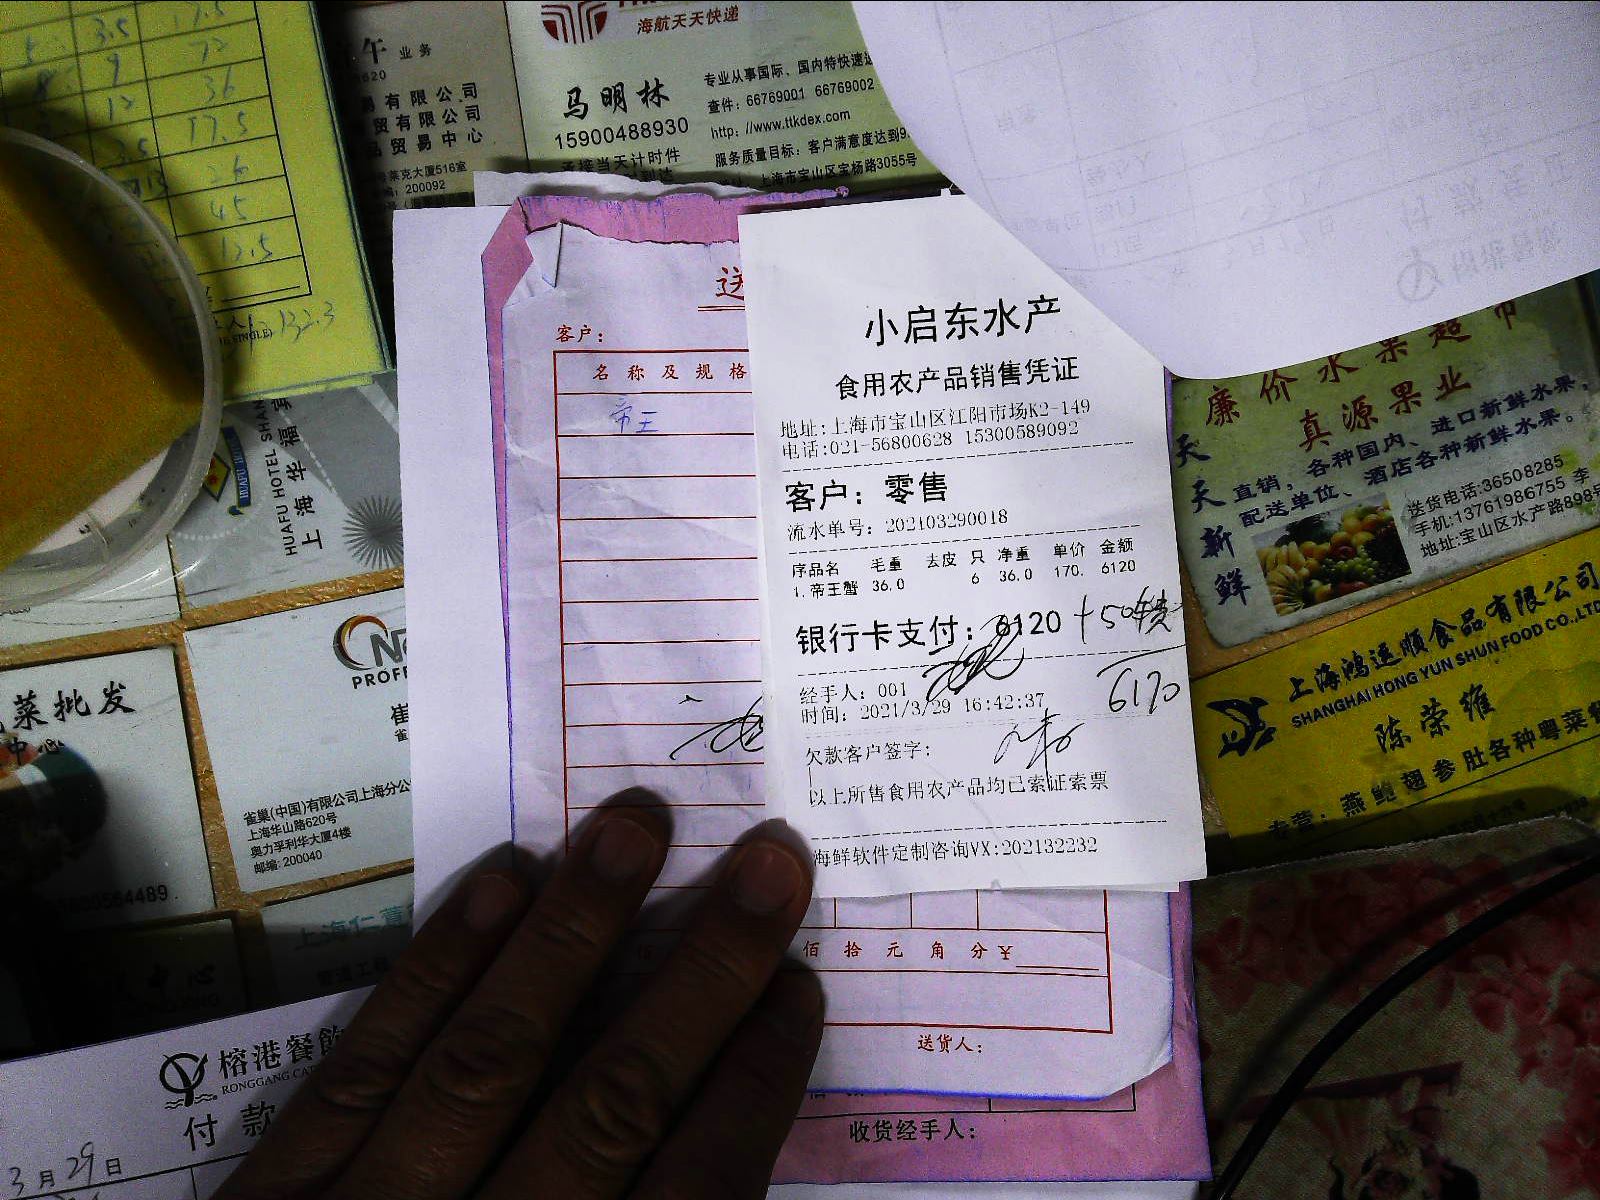 海航天天快递
业务
马明林
15900488930
承接当天计时件
专业从事国际、国内特快速递
查件: 66769001 66769002
http: //www.ttkdex.com
服务质量目标: 客户满意度达到9
上海市宝山区宝杨路3055号
易有限公司
贸有限公司
品贸易中心
莱克大厦516室
200092
3.5
17.5
9
72
12
36
17.5
26
45
13.5
132.3
送
客户:
名称及规格
帝王
小启东水产
食用农产品销售凭证
地址:上海市宝山区江阳市场K2-149
电话:021-56800628 15300589092
客户: 零售
流水单号: 202103290018
序品名 毛重 去皮 只 净重 单价 金额
1.帝王蟹 36.0 6 36.0 170. 6120
银行卡支付: 6120 +50
6170
经手人: 001
时间: 2021/3/29 16:42:37
欠款客户签字:
以上所售食用农产品均已索证索票
海鲜软件定制咨询VX:202132232
佰拾元角分¥
送货人:
收货经手人:
廉价水果超市
真源果业
天天新鲜
直销, 各种国内、进口新鲜水果,
配送单位、酒店各种新鲜水果。
送货电话:36508285
手机:13761986755 李
地址:宝山区水产路898号
上海鸿运顺食品有限公司
SHANGHAI HONG YUN SHUN FOOD CO.,LTD
陈荣雄
专营: 燕鲍翅参肚各种粤菜
HUAFU HOTEL SHAN
上海华福宾
HUAFU HOTEL
PROFE
崔
雀巢(中国)有限公司上海分公
上海华山路620号
奥力孚利华大厦4楼
邮编: 200040
菜批发
中心
上海仁
管道工程
榕港餐飲
RONGGANG CA
付款
3月29日